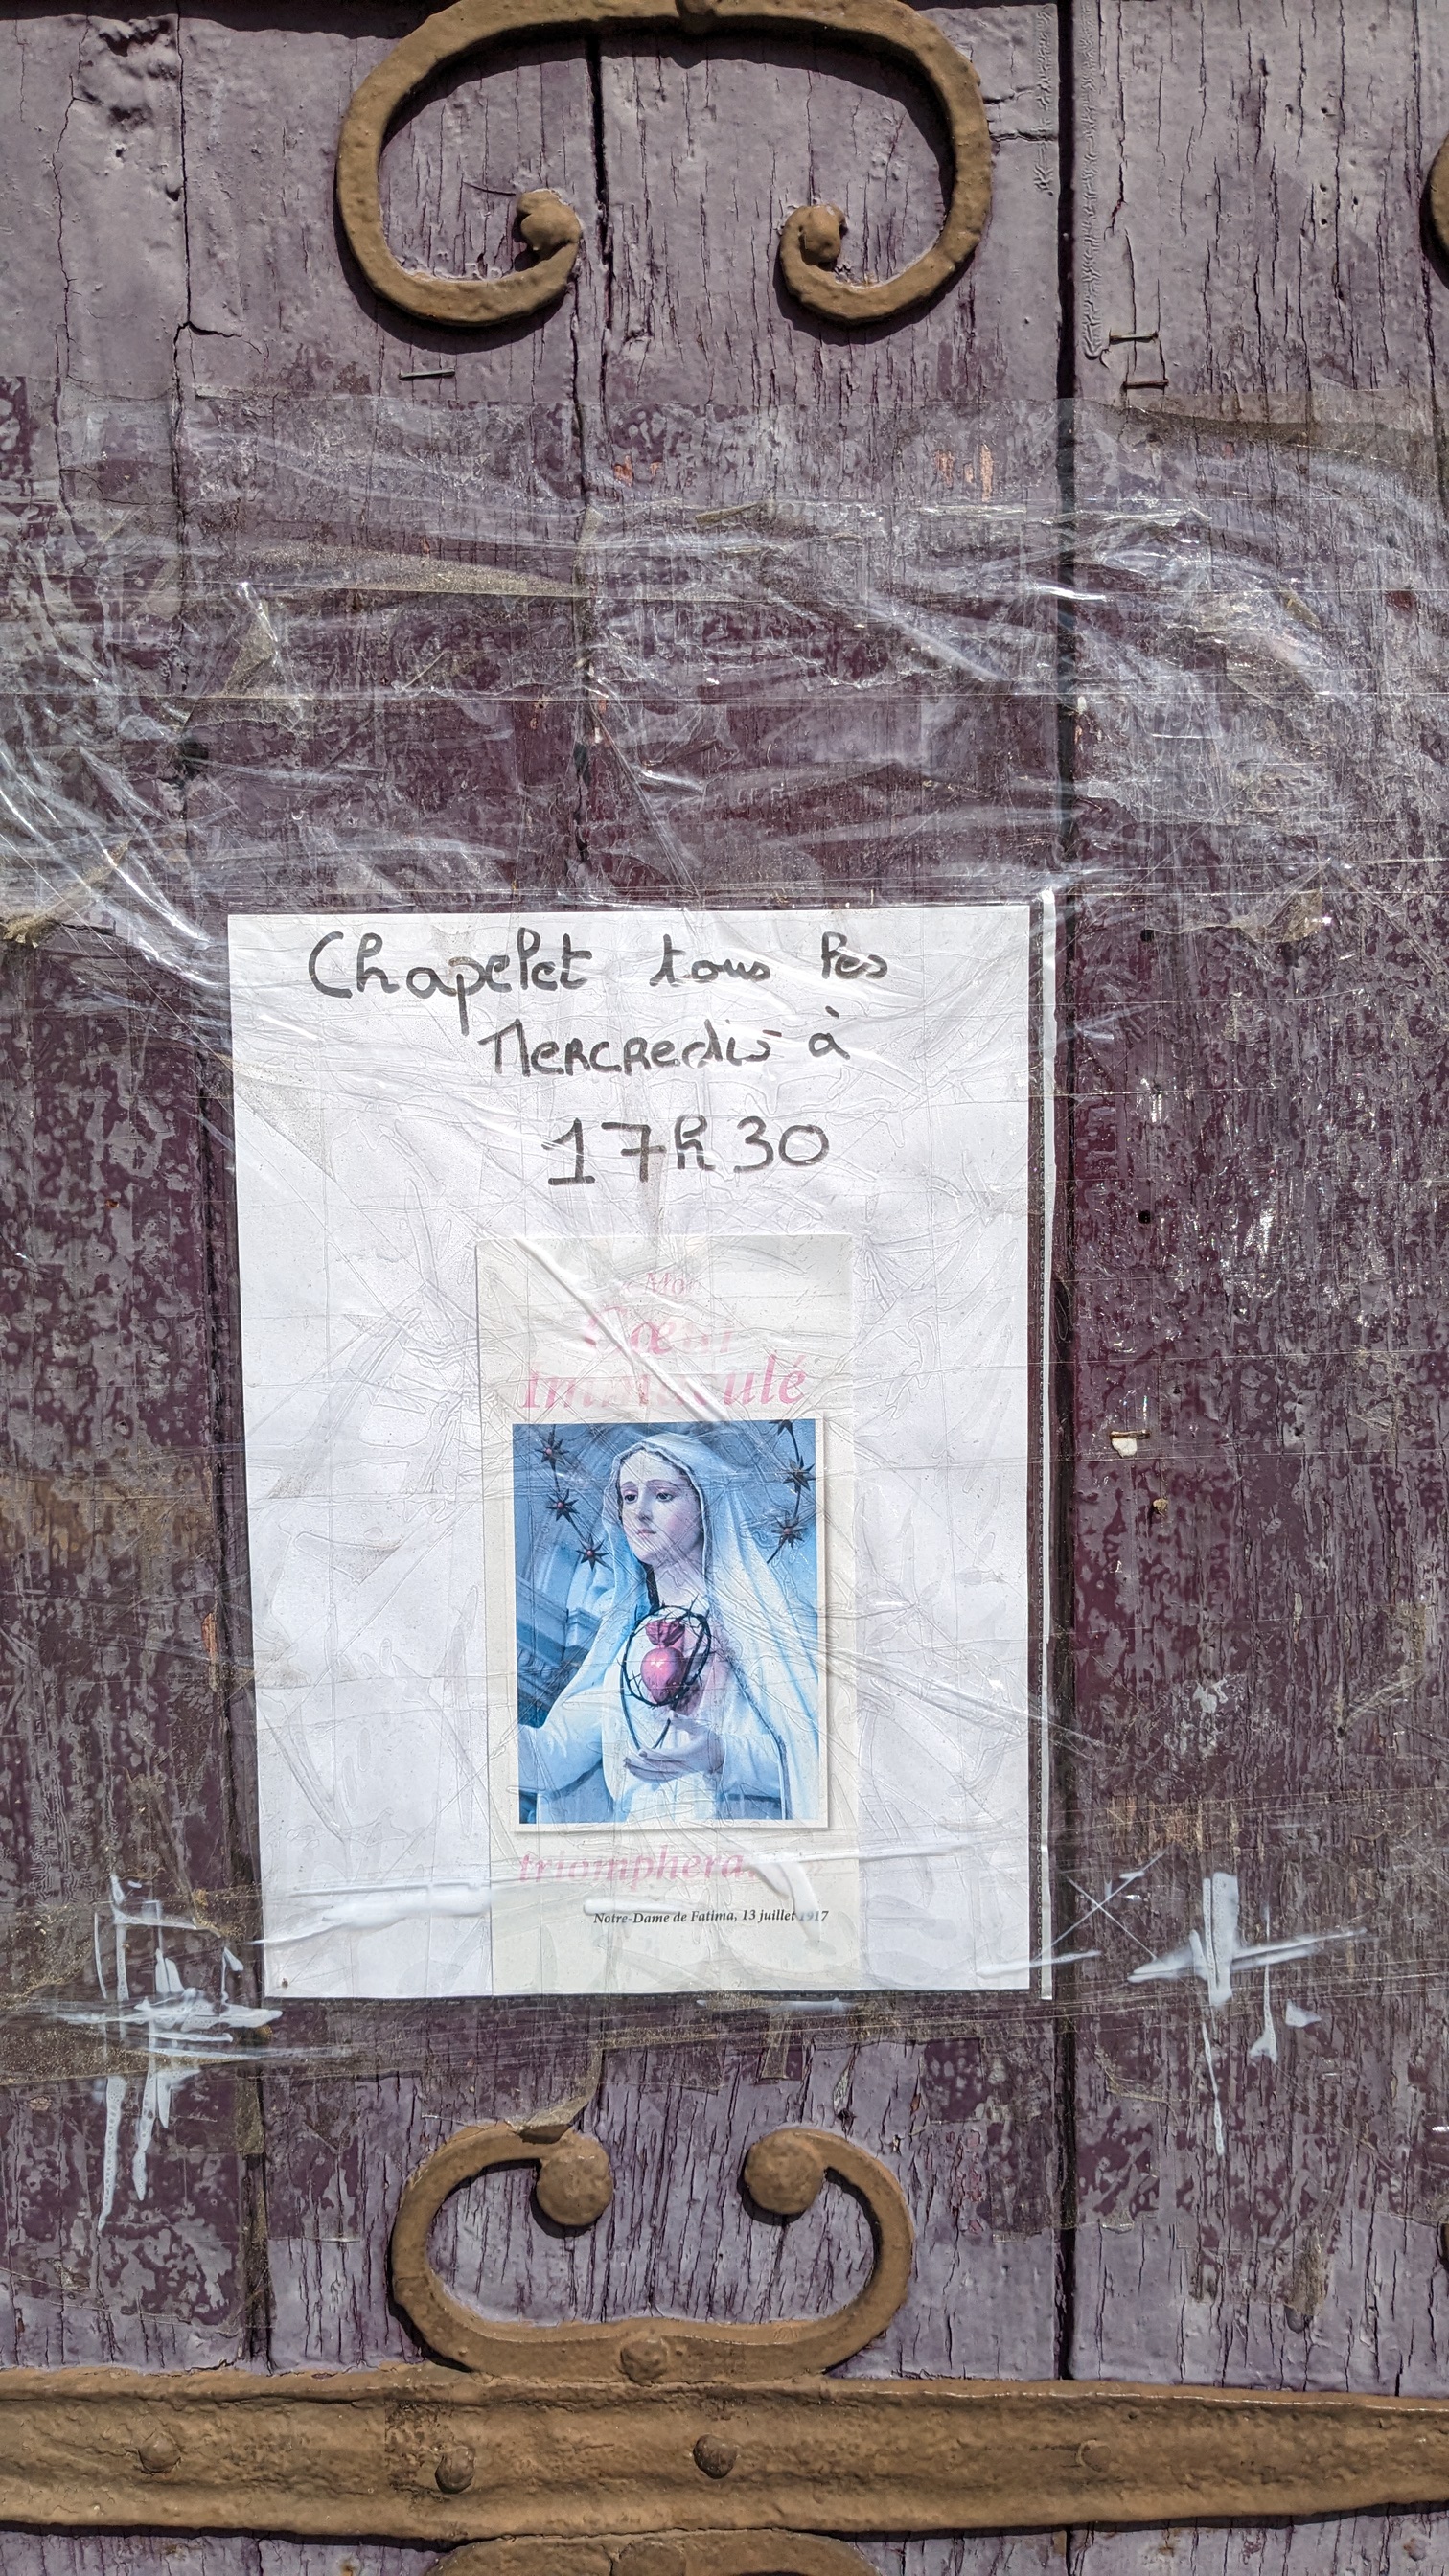 Chapelet tous les
Mercredis à
17h30
Mon
Cœur
Immaculé
triomphera
Notre-Dame de Fatima, 13 juillet 1917